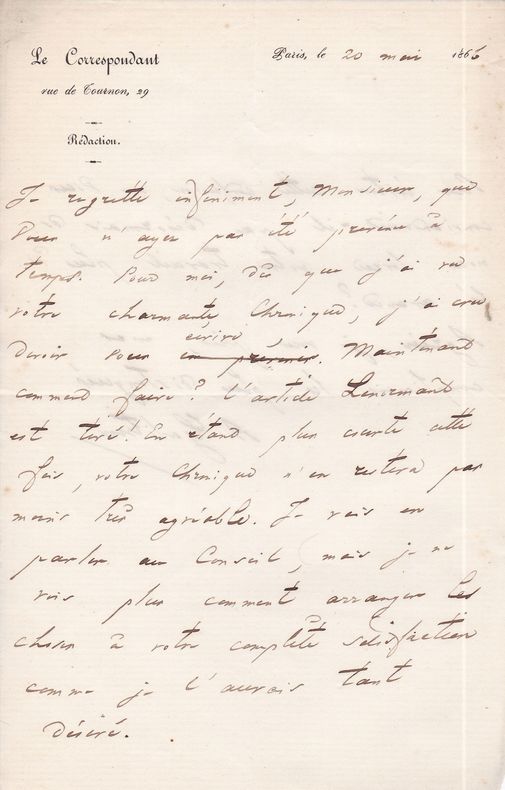 Le Correspondant
Paris, le 20 mai 1866
rue de Tournon, 29
Rédaction.
Je regrette infiniment, Monsieur, que
vous n'ayez pas été prévenu à
temps. Pour moi, dès que j'ai vu
votre charmante Chronique, j'ai cru
écrire
devoir vous en prévenir. Maintenant
comment faire? L'article Lenormant
est tiré! En étant plus courte cette
fois, votre Chronique n'en restera pas
moins très agréable. Je vais en
parler au Conseil, mais je ne
vois plus comment arranger les
choses à votre complète satisfaction
comme je l'aurais tant
désiré.